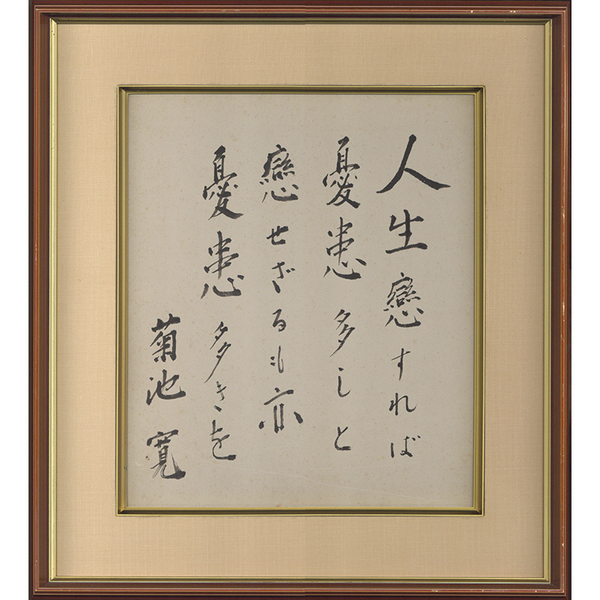 人生戀すれば
憂患多しと
戀せざるも亦
憂患多きを
菊池寛